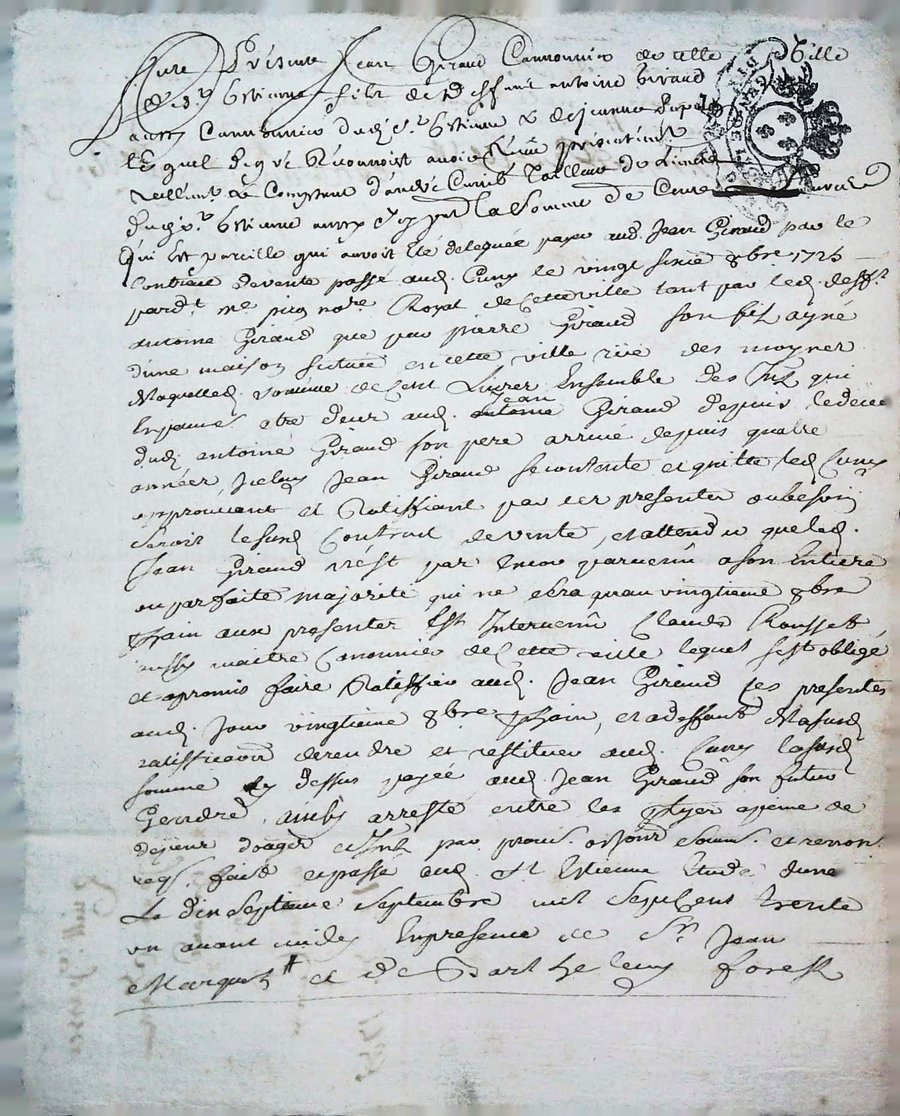 fure présent Jean Giraud Cannonnier de cette Ville
de St Estienne fils de deffunt antoine Giraud
aussy Cannonnier dudt St Estienne & de jeanne
lequel de gré Reconnoist avoir Reçeu présentement
Reellemt & Comptant d'andré Tailleur de Limes
dudt St Estienne aussy cy pnt la Somme de Cent
qui est pareille qui avoit été deleguée payer aud. Jean Giraud par le
Contract de vente passé aud. Cuny le vingt 8bre 1725
pardt me nore Royal de Cette ville tant par led. defft
antoine Giraud que par pierre Giraud son fils ayné
d'une maison scituée en cette ville rüe des moyner
Laquelle somme de Cent Livres Ensemble des qui
antoine Jean Giraud depuis le décé
dudt antoine Giraud son pere arrivé depuis quatre
années, jceluy Jean Giraud se contente et quitte led Cuny
approuvant et Ratiffiant par ces presentes au besoin
seroit lesusd Contract de vente, et attendu que led.
Jean Giraud n'est pas Encor parvenu a son Entiere
ou parfaite majorité qui ne sera qu'au vingtieme 8bre
pchain aux presentes Est Intervenu Claude Rousset
aussy maitre Canonnier de Cette ville lequel s'est obligé
et a promis faire Ratiffier aud. Jean Giraud ses presentes
aud. Jour vingtieme 8bre pchain, et a deffaut de la susd
ratiffication de rendre et restituer aud. Cuny la susd
somme cy dessus payée aud Jean Giraud son futur
Gendre, ainsy arresté entre les ptyes a peine de
par et renon.
reqs. fait et passé aud. St Estienne Etude dune
Le dix septieme septembre mil sept cent trente
un avant midy En presence de Sr Jean
Marquet et de Barthelemy forest